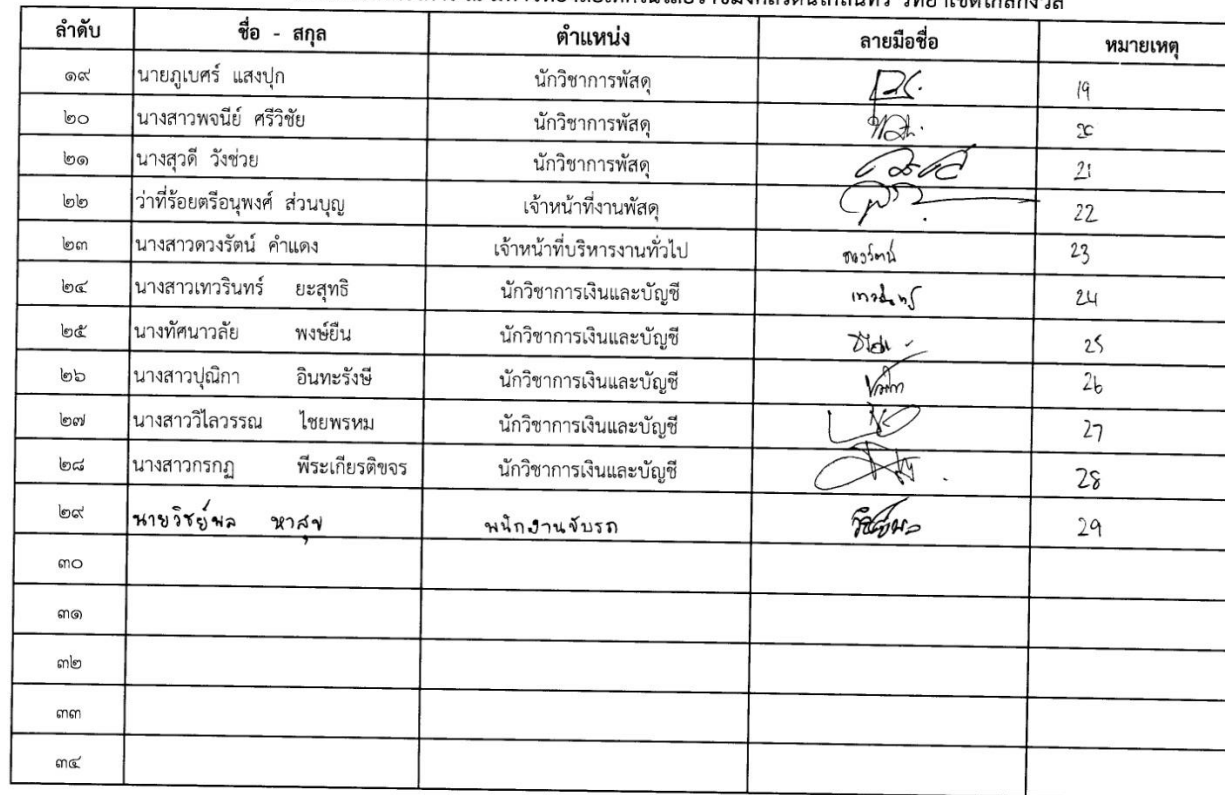 วิทยาเขตไกลกังวล
ลำดับ ชื่อ - สกุล ตำแหน่ง ลายมือชื่อ หมายเหตุ
๑๙ นายภูเบศร์ แสงปุก นักวิชาการพัสดุ 19
๒๐ นางสาวพจนีย์ ศรีวิชัย นักวิชาการพัสดุ 20
๒๑ นางสุวดี วังช่วย นักวิชาการพัสดุ 21
๒๒ ว่าที่ร้อยตรีอนุพงศ์ ส่วนบุญ เจ้าหน้าที่งานพัสดุ 22
๒๓ นางสาวดวงรัตน์ คำแดง เจ้าหน้าที่บริหารงานทั่วไป ดวงรัตน์ 23
๒๔ นางสาวเทวรินทร์ ยะสุทธิ นักวิชาการเงินและบัญชี เทวรินทร์ 24
๒๕ นางทัศนาวลัย พงษ์ยืน นักวิชาการเงินและบัญชี 25
๒๖ นางสาวปุณิกา อินทะรังษี นักวิชาการเงินและบัญชี 26
๒๗ นางสาววิไลวรรณ ไชยพรหม นักวิชาการเงินและบัญชี 27
๒๘ นางสาวกรกฏ พีระเกียรติขจร นักวิชาการเงินและบัญชี 28
๒๙ นายวิชย์พล หาสุข พนักงานขับรถ 29
๓๐
๓๑
๓๒
๓๓
๓๔